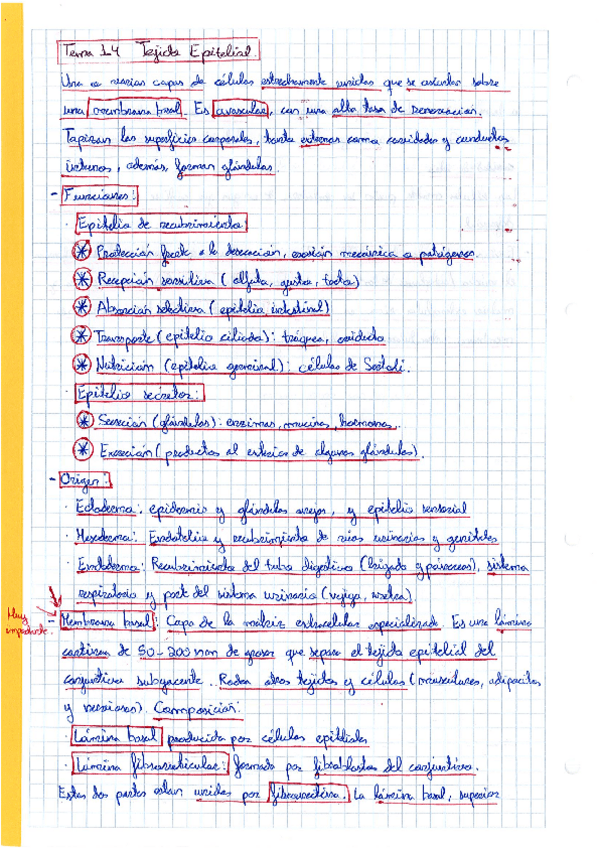 Tema 14 Tejido Epitelial.
Una o varias capas de células estrechamente unidas que se asientan sobre
una membrana basal. Es avascular, con una alta tasa de renovación.
Tapizan las superficies corporales, tanto externas como cavidades y conductos
internos, además, forman glándulas.
- Funciones:
· Epitelio de recubrimiento
* Protección frente a la desecación, erosión mecánica o patógenos.
* Recepción sensitiva (olfato, gusto, tacto)
* Absorción selectiva (epitelio intestinal)
* Transporte (epitelio ciliado): tráquea, oviducto
* Nutrición (epitelio germinal): células de Sertoli.
· Epitelio secretor:
* Secreción (glándulas): enzimas, mucina, hormonas.
* Excreción (productos al exterior de algunas glándulas).
- Origen:
· Ectodermo: epidermis y glándulas anejas, y epitelio sensorial
· Mesodermo: Endotelio y recubrimiento de vías urinarias y genitales
· Endodermo: Recubrimiento del tubo digestivo (hígado y páncreas), sistema
respiratorio y part del sistema urinario (vejiga, uretra).
Muy importante
- Membrana basal: Capa de la matriz extracelular especializada. Es una lámina
continua de 50-200 nm de grosor que separa el tejido epitelial del
conjuntivo subyacente. Rodea otros tejidos y células (musculares, adipocitos
y nerviosos). Composición:
· Lámina basal producida por células epiteliales
· Lámina fibroreticular: formada por fibroblastos del conjuntivo.
Estas dos partes están unidas por fibronectina. La lámina basal, superior